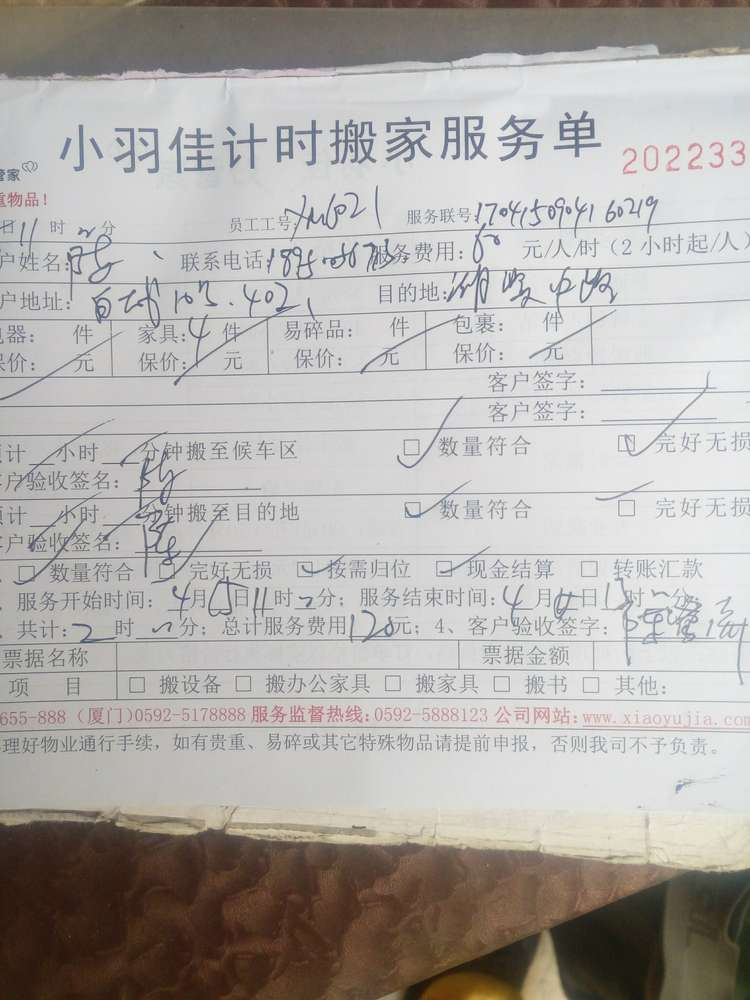 管家
小羽佳计时搬家服务单
202233
重物品！
日11时 分 员工工号: 服务联号:170415090416 0219
户姓名: 联系电话: 服务费用:60 元/人/时（2小时起/人）
户地址: 402 目的地:
电器: 件 家具:4 件 易碎品: 件 包裹: 件
保价: 元 保价: 元 保价: 元 保价: 元
客户签字:
客户签字:
预计 小时 分钟搬至候车区 □ 数量符合 □ 完好无损
客户验收签名:
预计 小时 分钟搬至目的地 □ 数量符合 □ 完好无损
客户验收签名:
□ 数量符合 □ 完好无损 □ 按需归位 □ 现金结算 □ 转账汇款
、服务开始时间: 4月15日11时 分; 服务结束时间: 4月 日13时 分
、共计: 2 时 分; 总计服务费用120元; 4、客户验收签字:
票据名称 票据金额
项 目 □ 搬设备 □ 搬办公家具 □ 搬家具 □ 搬书 □ 其他:
655-888 (厦门)0592-5178888 服务监督热线:0592-5888123 公司网站:www.xiaoyujia.com
理好物业通行手续，如有贵重、易碎或其它特殊物品请提前申报，否则我司不予负责。